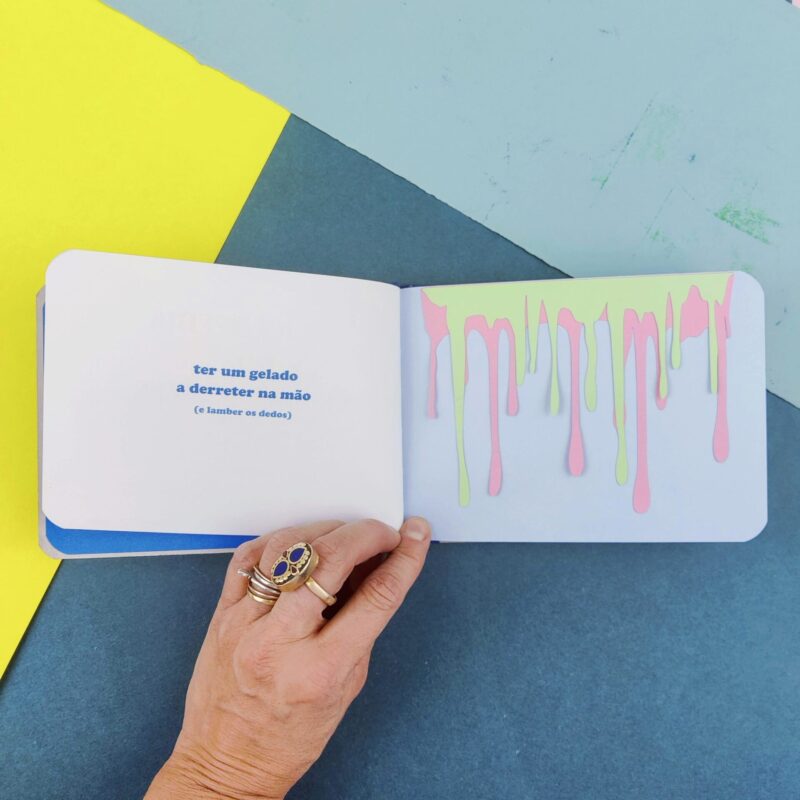 ter um gelado
a derreter na mão
(e lamber os dedos)